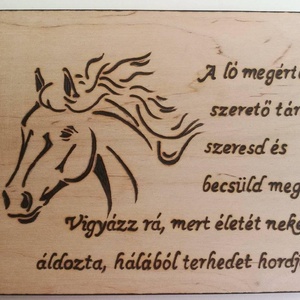 A ló megért
szerető tár
szeresd és
becsüld meg
Vigyázz rá, mert életét nek
áldozta, hálából terhedet hordj